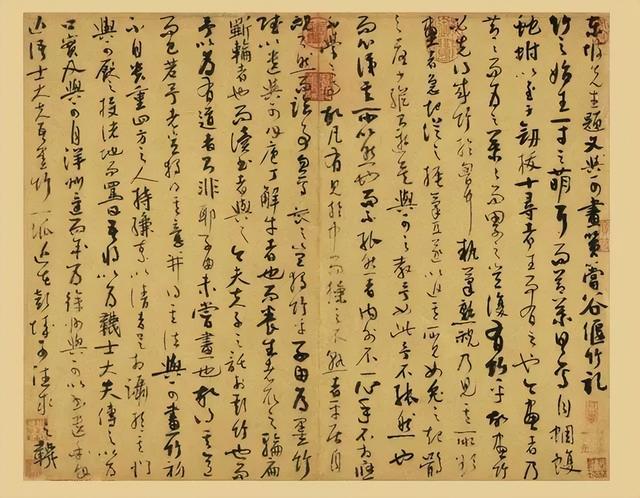 東坡先生題文與可畫篔簹谷偃竹記
竹之始生一寸之萌耳而節葉具焉自蜩蝮
蛇蚹以至于劍拔十尋者生而有之也今畫者乃
節節而為之葉葉而累之豈復有竹乎故畫竹
必先得成竹於胸中執筆熟視乃見其所欲
畫者急起從之振筆直遂以追其所見如兔之起鶻
之落少縱則逝矣與可之教予如此予不能然也
而心識其所以然也而不能然者內外不一心手不相應
不學之過也故凡有見於中而操之不熟者平居自
視了然而臨事忽焉喪之豈獨竹乎子由為墨竹
賦以遺與可曰庖丁解牛者也而養生者取之輪扁
斲輪者也而讀書者與之今夫夫子之託於斯竹也而
予以為有道者則非耶子由未嘗畫也故得其意
而已若予者豈獨得其意并得其法與可畫竹初
不自貴重四方之人持縑素以請者足相躡於其門
與可厭之投諸地而罵曰吾將以為韈士大夫傳之以為
口實及與可自洋州還而余為徐州與可以書遺余曰
近語士大夫吾墨竹一派近在彭城可往求之韈